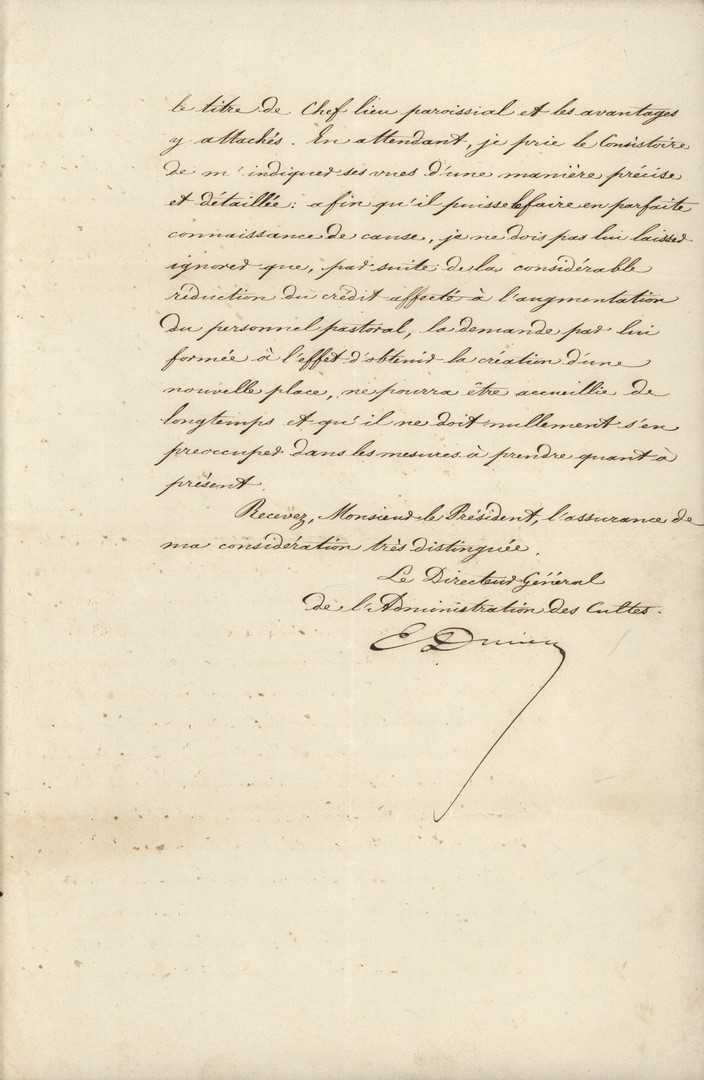 le titre de Chef lieu paroissial et les avantages
y attachés. En attendant, je prie le Consistoire
de m'indiquer ses vues d'une manière précise
et détaillée : afin qu'il puisse le faire en parfaite
connaissance de cause, je ne dois pas lui laisser
ignorer que, par suite de la considérable
réduction du crédit affecté à l'augmentation
du personnel pastoral, la demande par lui
formée à l'effet d'obtenir la création d'une
nouvelle place, ne pourra être accueillie de
longtemps et qu'il ne doit nullement s'en
preoccuper dans les mesures à prendre quant à
présent.
Recevez, Monsieur le Président, l'assurance de
ma considération très distinguée.
Le Directeur Général
de l'Administration des Cultes.